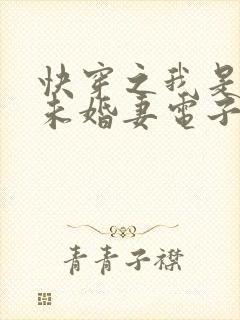 快穿之我是
未婚妻电子
青青子襟